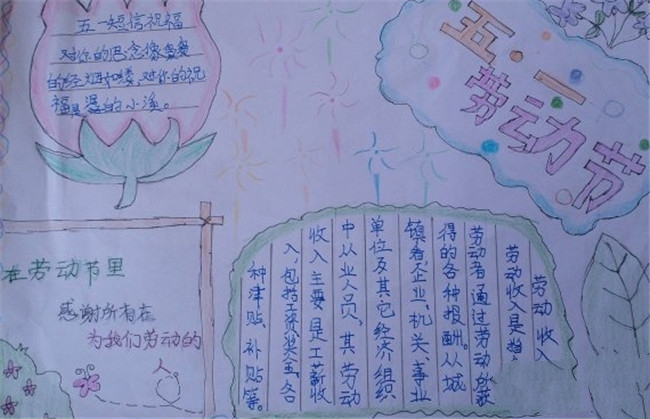 五一短信祝福
对你的思念像袅袅
的 对你的祝
福是 的小溪。
五·一
劳动节
在劳动节里
感谢所有在
为我们劳动的
人
劳动收入
劳动收入是指
劳动者通过劳动所获
得的各种报酬。从城
镇看,企业、机关、事业
单位及其它经济组织
中从业人员,其劳动
收入主要是工薪收
入,包括工资、奖金、各
种津贴、补贴等。